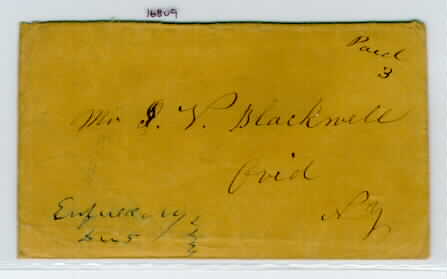 16809
Paid
3
Mr. J. V. Blackwell
Ovid
N.Y.
Enfield N.Y.